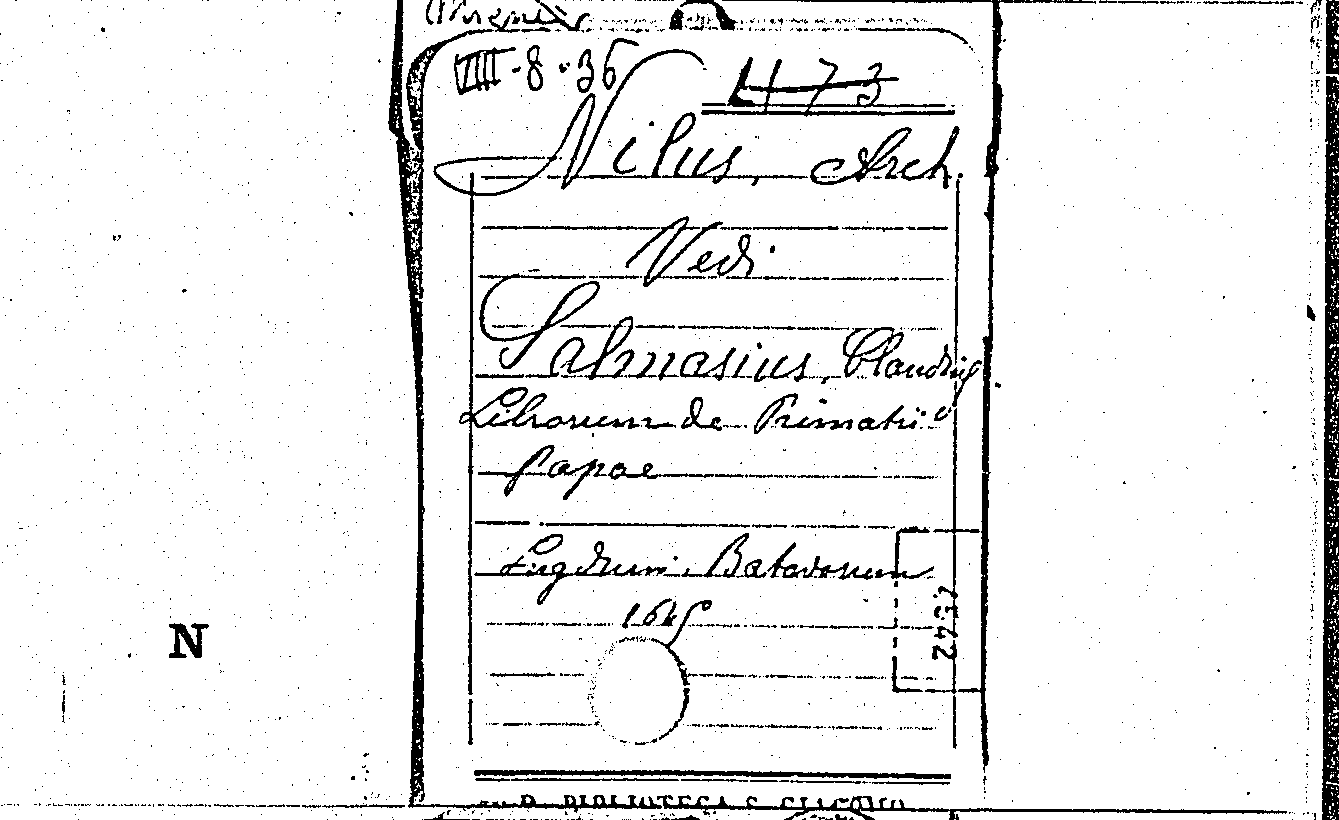 VIII-8-36
473
Nilus, Arch.
Vedi
Salmasius, Claudius
Librorum de Primatu
Papae
Lugduni Batavorum
1645
4542
N
R. BIBLIOTECA S. GIACOMO